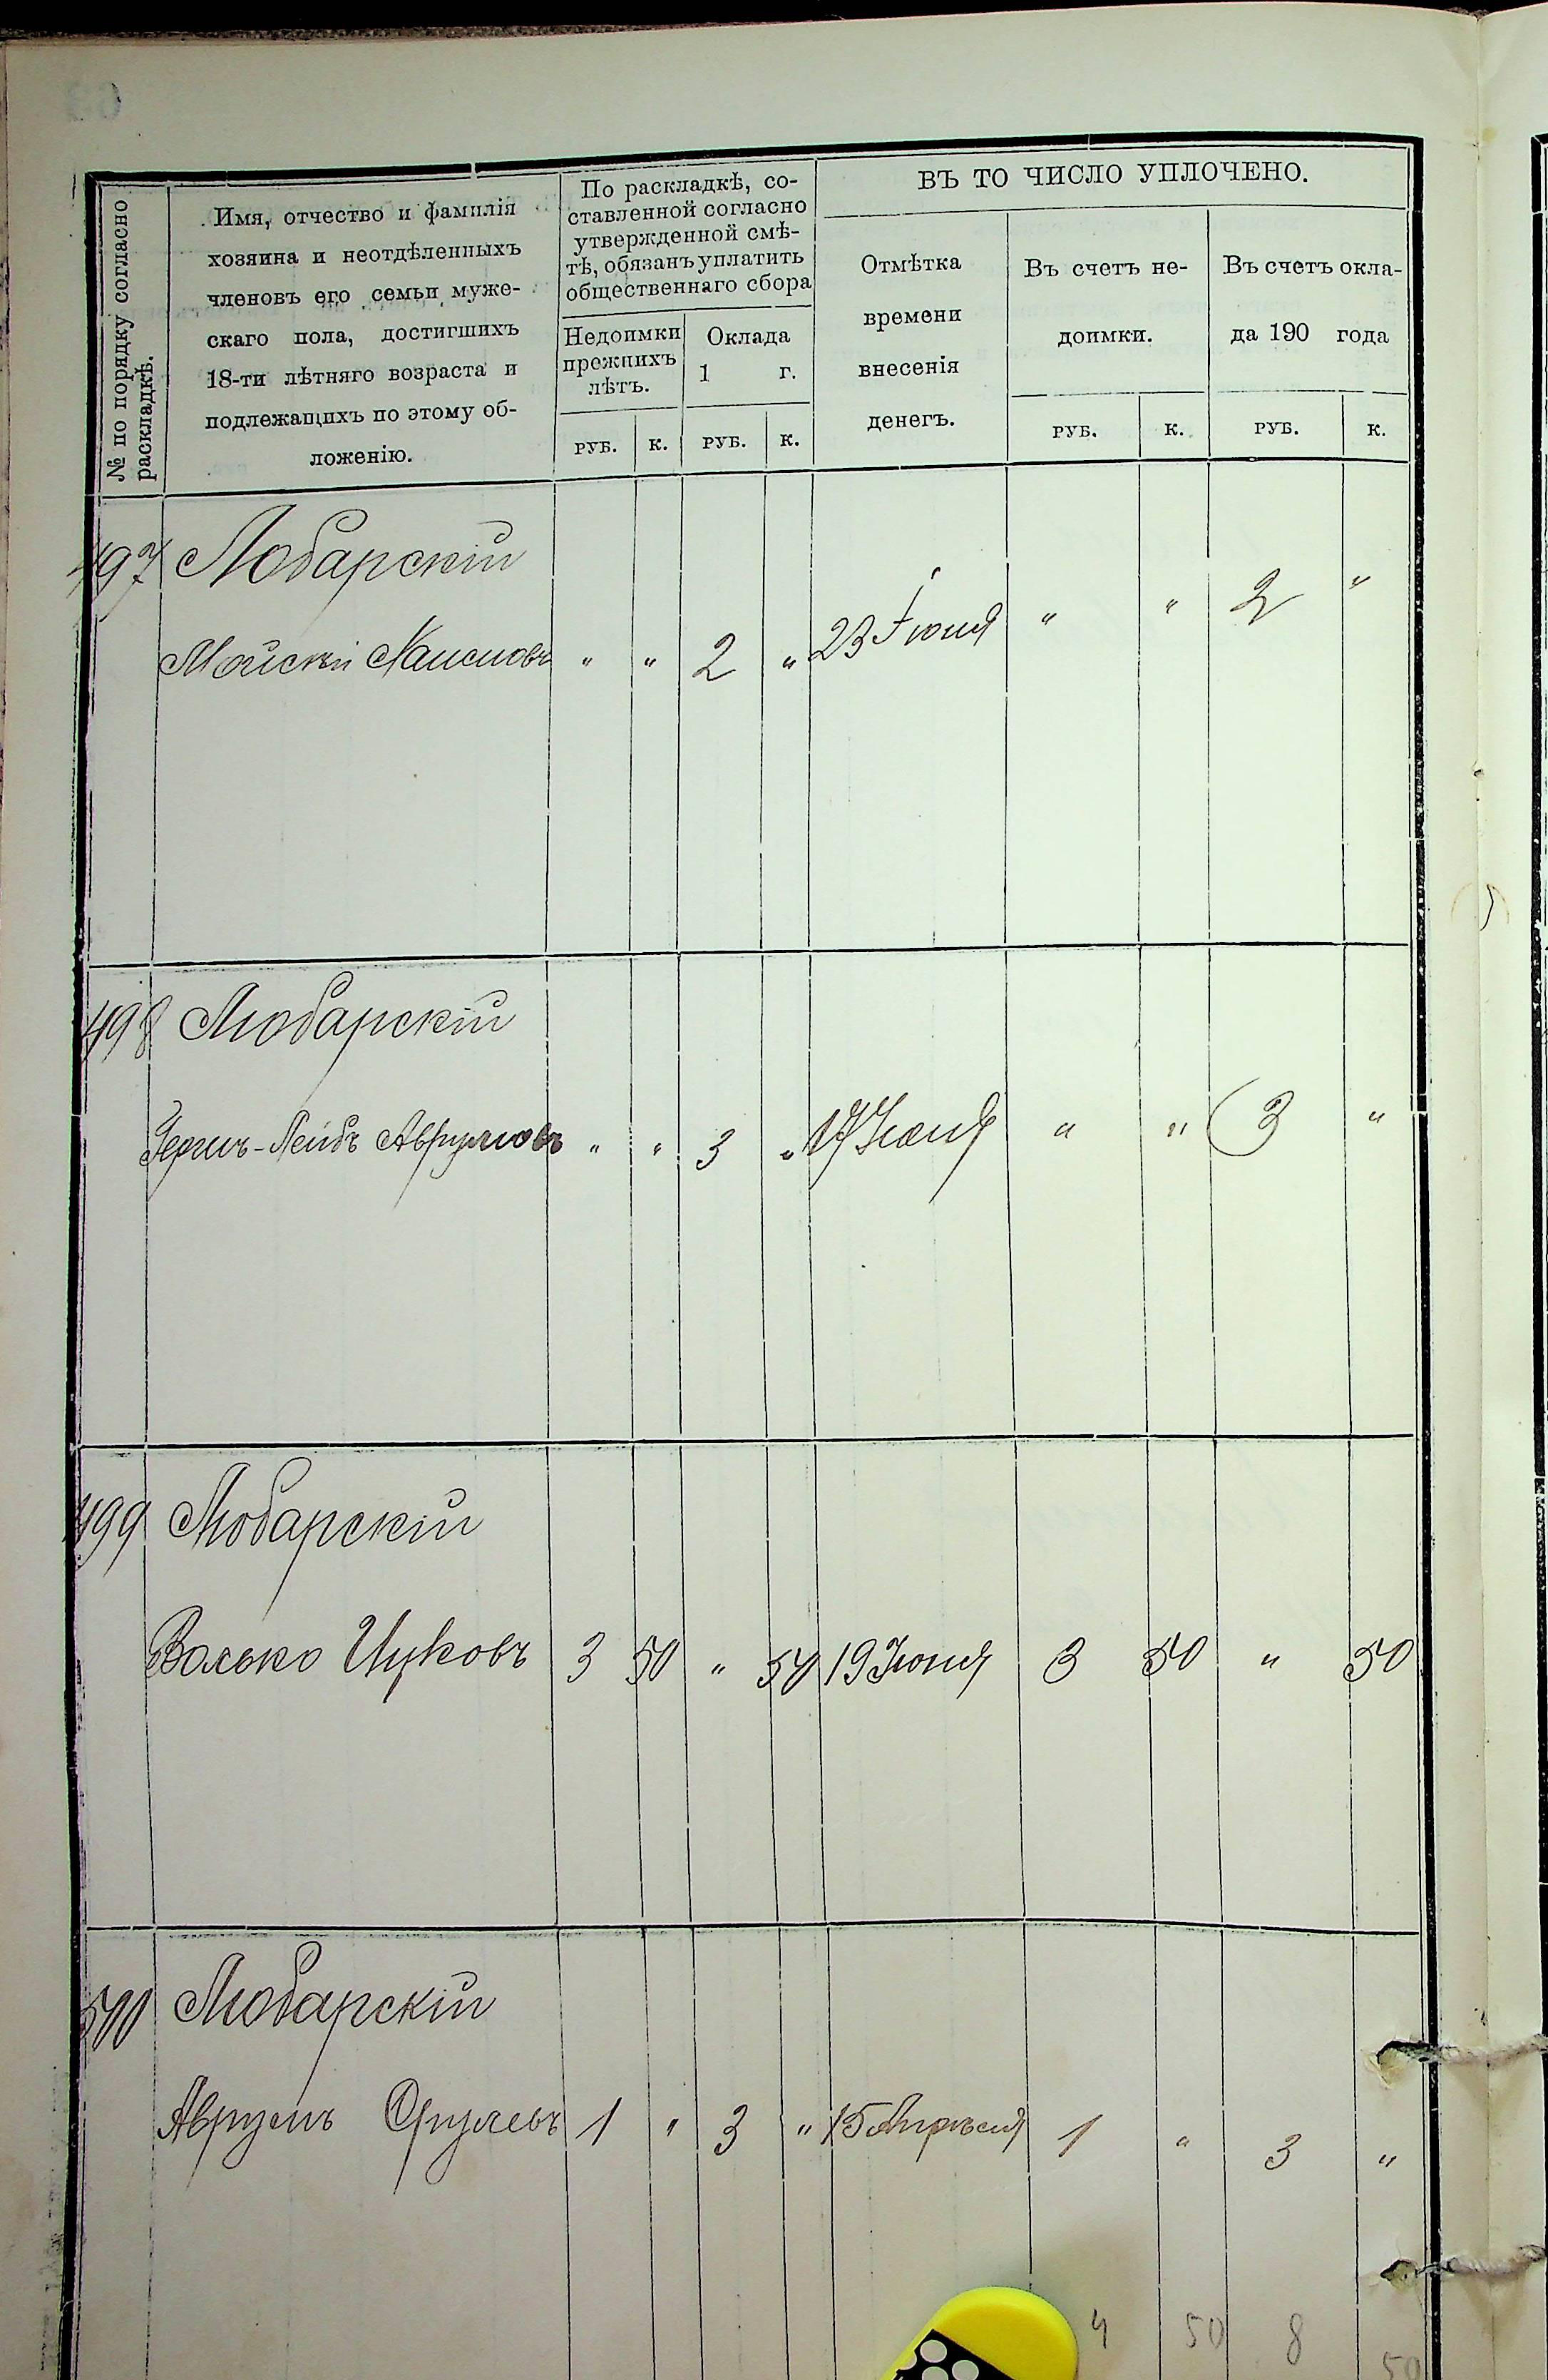 № по порядку согласно
раскладкѣ.
Имя, отчество и фамилія
хозяина и неотдѣленныхъ
членовъ его семьи муже-
скаго пола, достигшихъ
18-ти лѣтняго возраста и
подлежащихъ по этому об-
ложенію.
По раскладкѣ, со-
ставленной согласно
утвержденной смѣ-
тѣ, обязанъ уплатить
общественнаго сбора
Недоимки
прежнихъ
лѣтъ.
Оклада
1 г.
РУБ. К. РУБ. К.
ВЪ ТО ЧИСЛО УПЛОЧЕНО.
Отмѣтка
времени
внесенія
денегъ.
Въ счетъ не-
доимки.
Въ счетъ окла-
да 190 года
РУБ. К. РУБ. К.
497 Любарскій
" " 2 " 23 Іюня " " 2 "
498 Любарскій
Лейбъ Аврумовъ " " 3 " 17 Іюня " " 3 "
499 Любарскій
Волько Ицковъ 3 50 " 50 19 Іюня 3 50 " 50
500 Любарскій
Аврумъ Срулевъ 1 " 3 " 15 Апрѣля 1 " 3 "
4 50 8 50